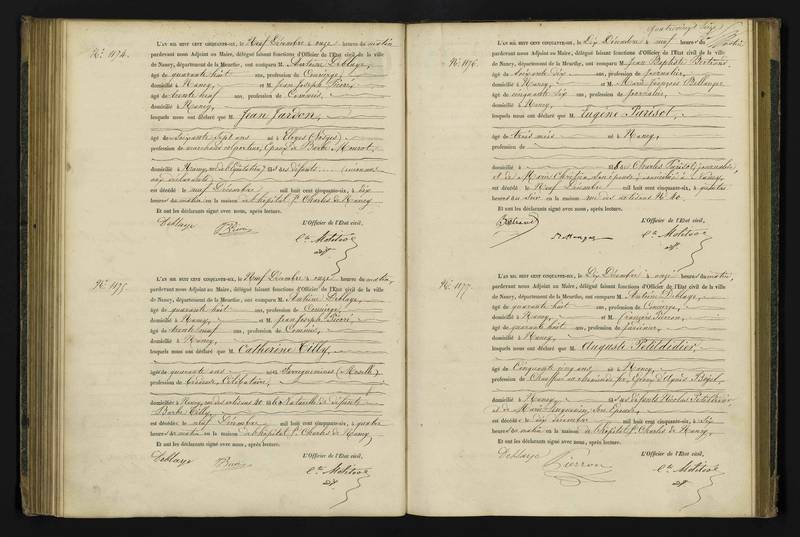 N.° 1174.
L'AN MIL HUIT CENT CINQUANTE-SIX, le Neuf Décembre à onze heures du matin
pardevant nous Adjoint au Maire, délégué faisant fonctions d'Officier de l'État civil de la ville
de Nancy, département de la Meurthe, ont comparu M. Antoine Deblaye,
âgé de quarante huit ans, profession de Concierge,
domicilié à Nancy, et M. Jean Joseph
âgé de trente neuf ans, profession de Commis,
domicilié à Nancy,
lesquels nous ont déclaré que M. Jean Jardon,
âgé de Soixante Sept ans né à Eloyes (Vosges)
profession de marchand colporteur, Epoux de Barbe
domicilié à Nancy,
est décédé le neuf Décembre mil huit cent cinquante-six, à six
heures du matin en la maison de l'hôpital St Charles de Nancy
Et ont les déclarants signé avec nous, après lecture.
Deblaye
L'Officier de l'État civil,
N.° 1175.
L'AN MIL HUIT CENT CINQUANTE-SIX, le Neuf Décembre à onze heures du matin,
pardevant nous Adjoint au Maire, délégué faisant fonctions d'Officier de l'État civil de la ville
de Nancy, département de la Meurthe, ont comparu M. Antoine Deblaye,
âgé de quarante huit ans, profession de Concierge
domicilié à Nancy, et M. Jean Joseph
âgé de trente neuf ans, profession de Commis,
domicilié à Nancy,
lesquels nous ont déclaré que M. Catherine Tilly,
âgé de quarante ans née à Sarreguemines (Moselle)
profession de Célibataire,
domicilié à Nancy, rue des artisans 20
Barbe Tilly
est décédée le neuf Décembre mil huit cent cinquante-six, à quatre
heures du matin en la maison de l'hôpital St Charles de Nancy,
Et ont les déclarants signé avec nous, après lecture.
Deblaye
L'Officier de l'État civil,
quatrevingt Seize
N.° 1176.
L'AN MIL HUIT CENT CINQUANTE-SIX, le Dix Décembre à neuf heures du matin
pardevant nous Adjoint au Maire, délégué faisant fonctions d'Officier de l'État civil de la ville
de Nancy, département de la Meurthe, ont comparu M. Jean Baptiste Bertrand
âgé de Soixante Dix ans, profession de journalier,
domicilié à Nancy, et M. François Bellanger
âgé de cinquante Six ans, profession de journalier,
domicilié à Nancy,
lesquels nous ont déclaré que M. Eugène Parisot,
âgé de trois mois né à Nancy,
profession de
domicilié à fils de Charles Parisot, journalier,
et de Marie son épouse, domiciliés à Nancy
est décédé le Neuf Décembre mil huit cent cinquante-six, à quatre
heures du Soir en la maison rue des artisans N.°
Et ont les déclarants signé avec nous, après lecture.
L'Officier de l'État civil,
N.° 1177.
L'AN MIL HUIT CENT CINQUANTE-SIX, le Dix Décembre à onze heures du matin,
pardevant nous Adjoint au Maire, délégué faisant fonctions d'Officier de l'État civil de la ville
de Nancy, département de la Meurthe, ont comparu M. Antoine Deblaye,
âgé de quarante huit ans, profession de Concierge,
domicilié à Nancy, et M. François Pierron,
âgé de quarante huit ans, profession de
domicilié à Nancy,
lesquels nous ont déclaré que M. Auguste Petitdidier,
âgé de Cinquante cinq ans né à Nancy,
profession de
domicilié à Nancy, Nicolas Petitdidier
et de Marie son épouse,
est décédé le dix décembre mil huit cent cinquante-six, à six
heures du matin en la maison de l'hôpital St Charles de Nancy,
Et ont les déclarants signé avec nous, après lecture.
Deblaye
Pierron
L'Officier de l'État civil,